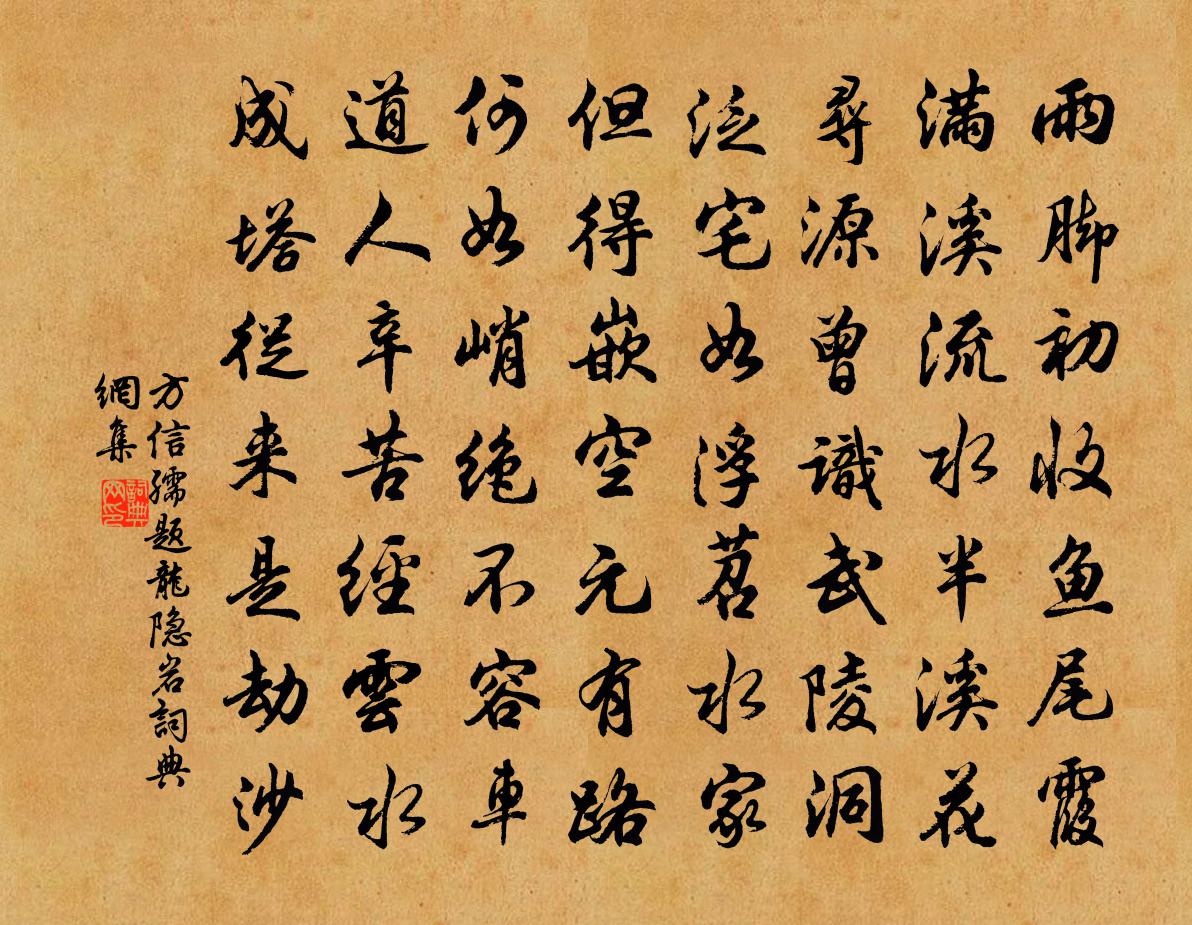 雨脚初收鱼尾霞
满溪流水半溪花
尋源曾識武陵洞
泛宅如浮苕水家
但得嵌空元有路
何如峭绝不容車
道人辛苦經雲水
成塔從来是劫沙
方信孺题龍隐岩詞典
網集
詞典
网印